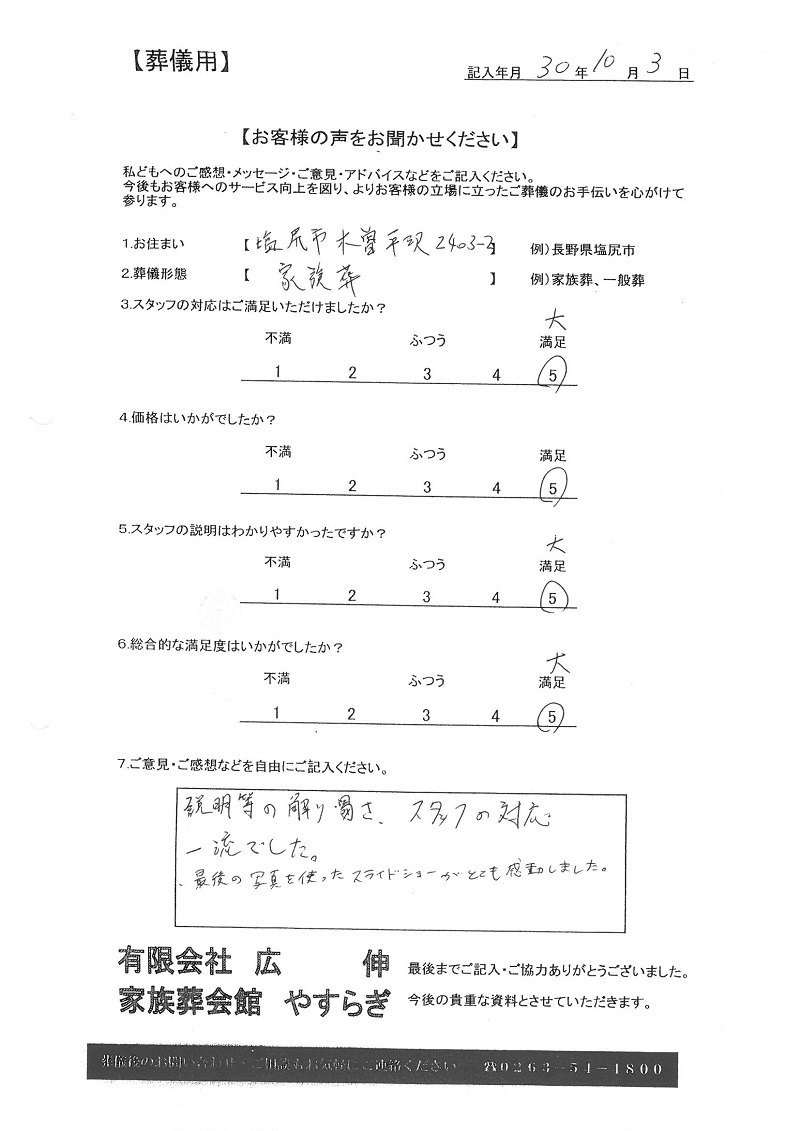 【葬儀用】
記入年月 30年10月3日
【お客様の声をお聞かせください】
私どもへのご感想・メッセージ・ご意見・アドバイスなどをご記入ください。
今後もお客様へのサービス向上を図り、よりお客様の立場に立ったご葬儀のお手伝いを心がけて
参ります。
1.お住まい 【塩尻市木曽平沢2403-2】 例)長野県塩尻市
2.葬儀形態 【 家族葬 】 例)家族葬、一般葬
3.スタッフの対応はご満足いただけましたか?
大
不満 ふつう 満足
1 2 3 4 5
4.価格はいかがでしたか?
不満 ふつう 満足
1 2 3 4 5
5.スタッフの説明はわかりやすかったですか?
大
不満 ふつう 満足
1 2 3 4 5
6.総合的な満足度はいかがでしたか?
大
不満 ふつう 満足
1 2 3 4 5
7.ご意見・ご感想などを自由にご記入ください。
説明等の解り易さ、スタッフの対応
一流でした。
、最後の写真を使ったスライドショーがとても感動しました。
有限会社 広 伸 最後までご記入・ご協力ありがとうございました。
家族葬会館 やすらぎ 今後の貴重な資料とさせていただきます。
葬儀後のお問い合わせ・ご相談もお気軽にご連絡ください ☎0263-54-1800